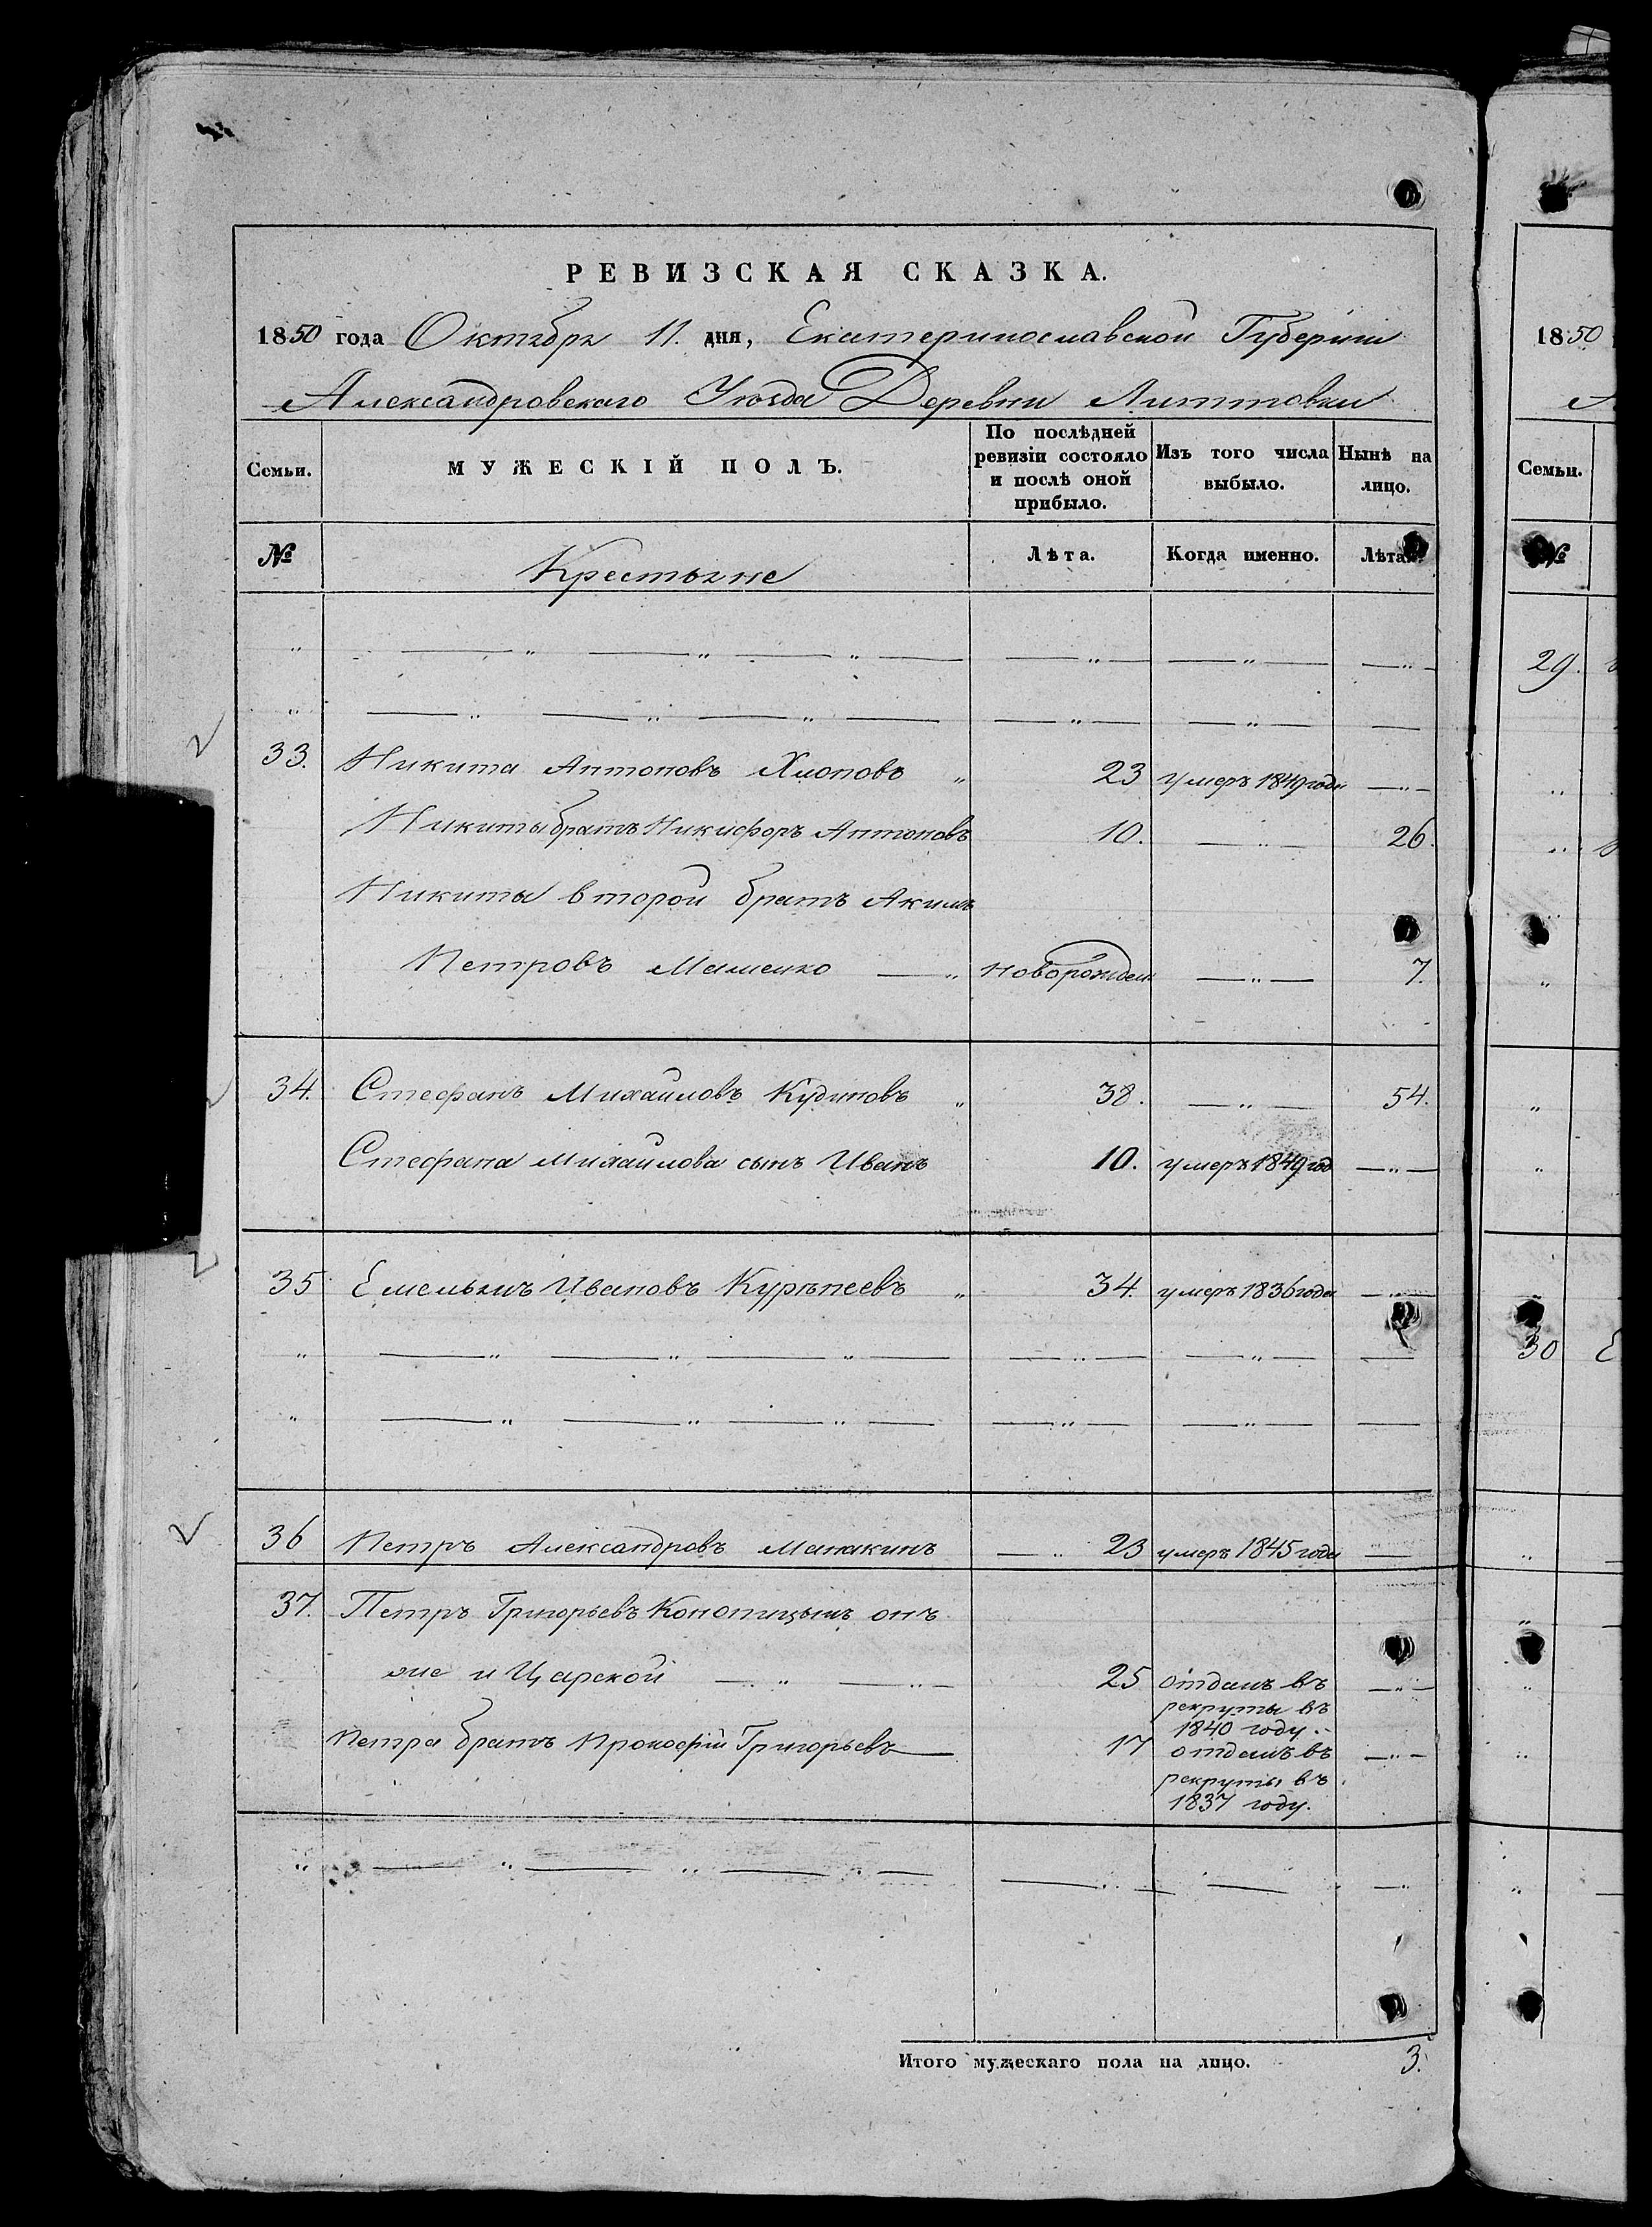 РЕВИЗСКАЯ СКАЗКА.
1850 года Октября 11. дня, Екатеринославской Губернии
Александровскаго Уѣзда Деревни Липповки
Семьи. МУЖЕСКІЙ ПОЛЪ. По послѣдней ревизіи состояло и послѣ оной прибыло. Изъ того числа выбыло. Нынѣ на лицо.
№ Крестьяне Лѣта. Когда именно. Лѣта.
33. Никита Антоновъ Хлоповъ 23 умеръ 1849 года
Никиты братъ Никифоръ Антоновъ 10. 26.
Никиты второй братъ Акимъ
Петровъ Маменко новорожден 7.
34. Стефанъ Михайловъ Кудиновъ 38. 54.
Стефана Михайлова сынъ Иванъ 10. умеръ 1849 год
35 Емельянъ Ивановъ Курѣпеевъ 34. умеръ 1836 года
36 Петръ Александровъ Манакинъ 23 умеръ 1845 года
37. Петръ Григорьевъ Конотицынъ онъ
же и Царской 25 отданъ въ
рекруты въ
1840 году.
Петра братъ Прокофій Григорьевъ 17 отданъ въ
рекруты въ
1837 году.
Итого мужескаго пола на лицо. 3.
1850
Семьи.
№
29.
30